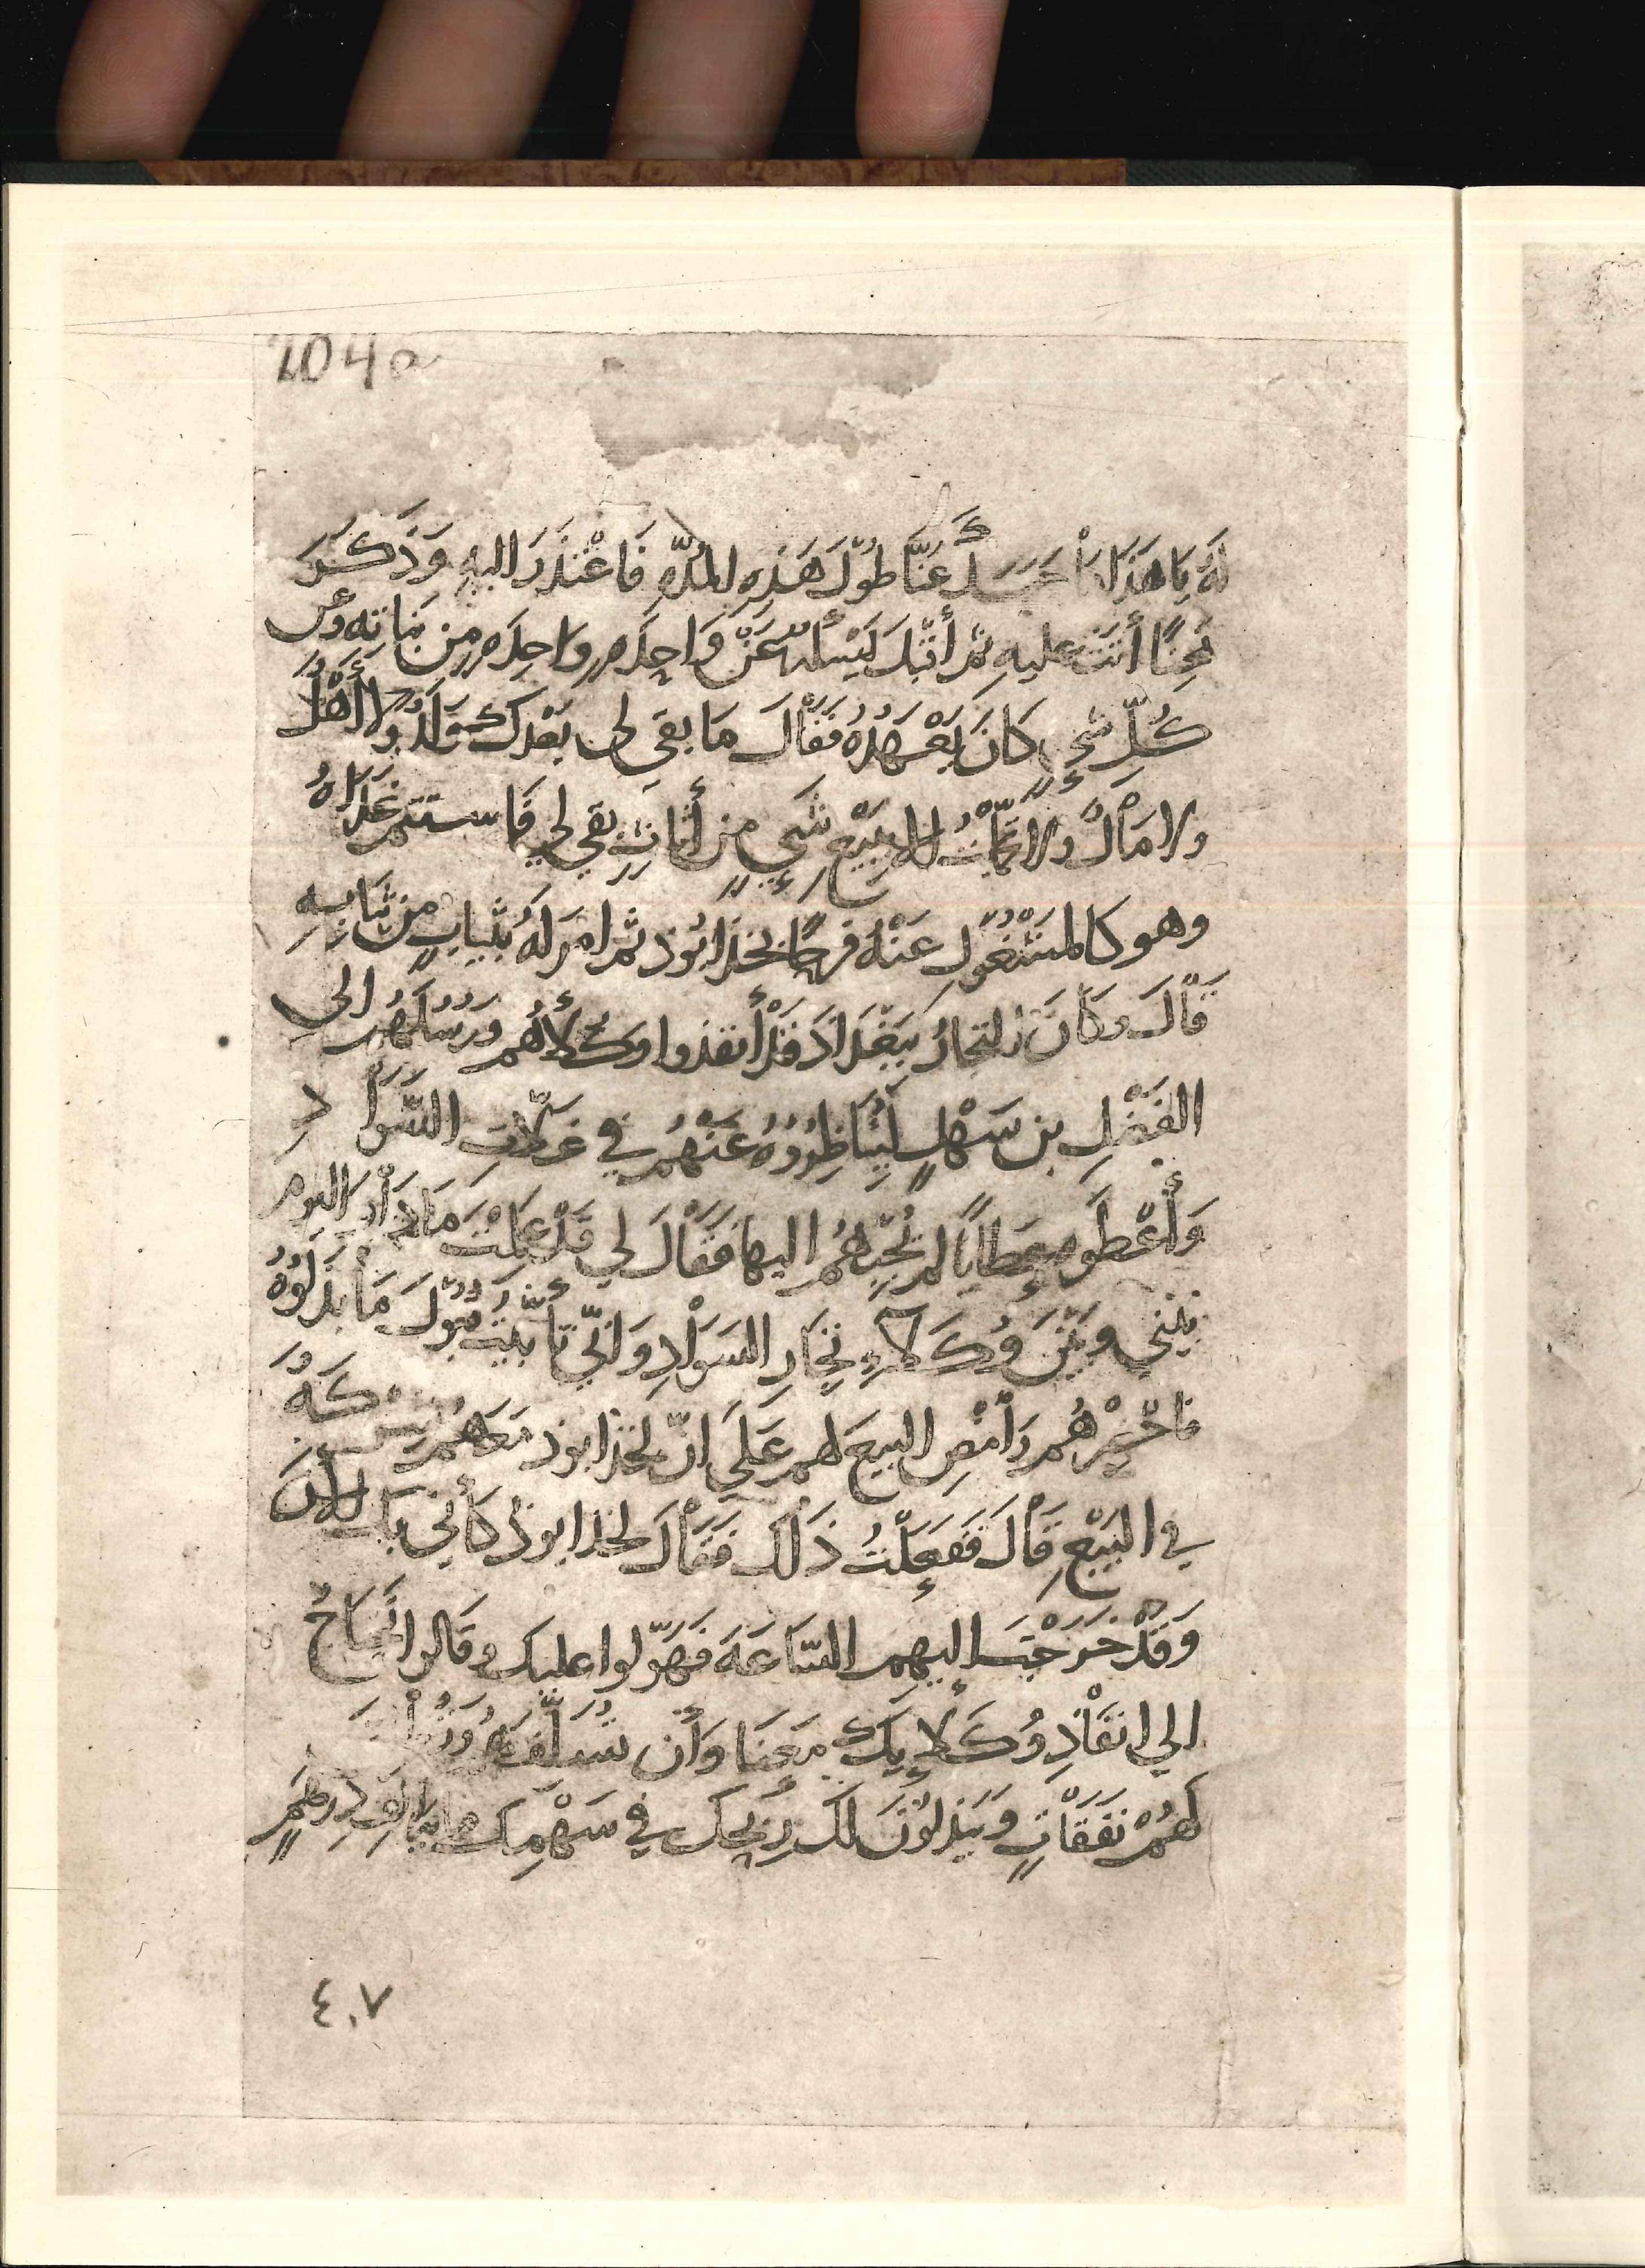 204a
لَهُ يَا هَذَا مَا حَبَسَكَ عَنَّا طُوْلَ هَذِهِ المُدَّهِ فَاعْتَذَرَ اليهِ وَذَكَرَ
مِحَنًا أتَتْ عليهِ ثم أقْبَلَ يَسْئلهُ عَنْ وَاحِدَهٍ وَاحِدَهٍ مِن بَنَاتِهِ وعن
كُلّ شيءٍ كَانَ يَعْهَدُهُ فَقَاْلَ مَا بقى لى بَعْدَكَ وَلَدٌ ولا أَهْلٌ
ولا مَاْلٌ ولا الا بِبَيْعِ شَيءٍ مِن أثاثٍ بقى لي فَاستتم غداهُ
وهو كالمشْغُوْلِ عَنْهُ فرحًا بخذابُوذ ثم امرَ لهُ بثيابٍ مِن ثيَابهِ
قَاْلَ وكَانَ التجارُ بِبَغْدَاذَ قَدْ أنفذوا وكلأهُم ورُسُلَهُم الى
الفَضْلِ بن سَهْلٍ لِيُنَاظِرُوْهُ عَنْهُم في غَلّاتِ السَّوَادِ
وَأُعْطَوْهُ عَطايًا لم يُجِبْهُم اليها فَقَاْلَ لي قَدْ عَلِمْتَ مَا دَاْرَ اليوم
بَيْنِي وبَيْنَ وُكَلاءِ تِجَارِ السَوَاْدِ وَانّي تأبّيْتُ قَبُوْلَ مَا بَذَلُوْهُ
فاخْبِرْهُم وَأمْضِ البيعَ لهم عَلَي انّ لخذابوذ مَعَهُم شِرْكَهُ
في البَيْعِ قَاْلَ فَفَعَلْتُ ذَلكَ فَقَاْلَ لخذابوذ كأني بكَ الآنَ
وَقَدْ خَرَجْتَ إليهِم السّاعَةَ فَهَوّلُوا عليكَ وقَالوا تَحْتَاجُ
الي انفَاْذِ وُكَلاءِكَ مَعَنَا وَأن
لَهُمْ نَفَقَاْتٍ وَيَبْذلُوْنَ لكَ رِبْحَكَ في سَهْمِكَ دِرهَمٍ
٤٠٧